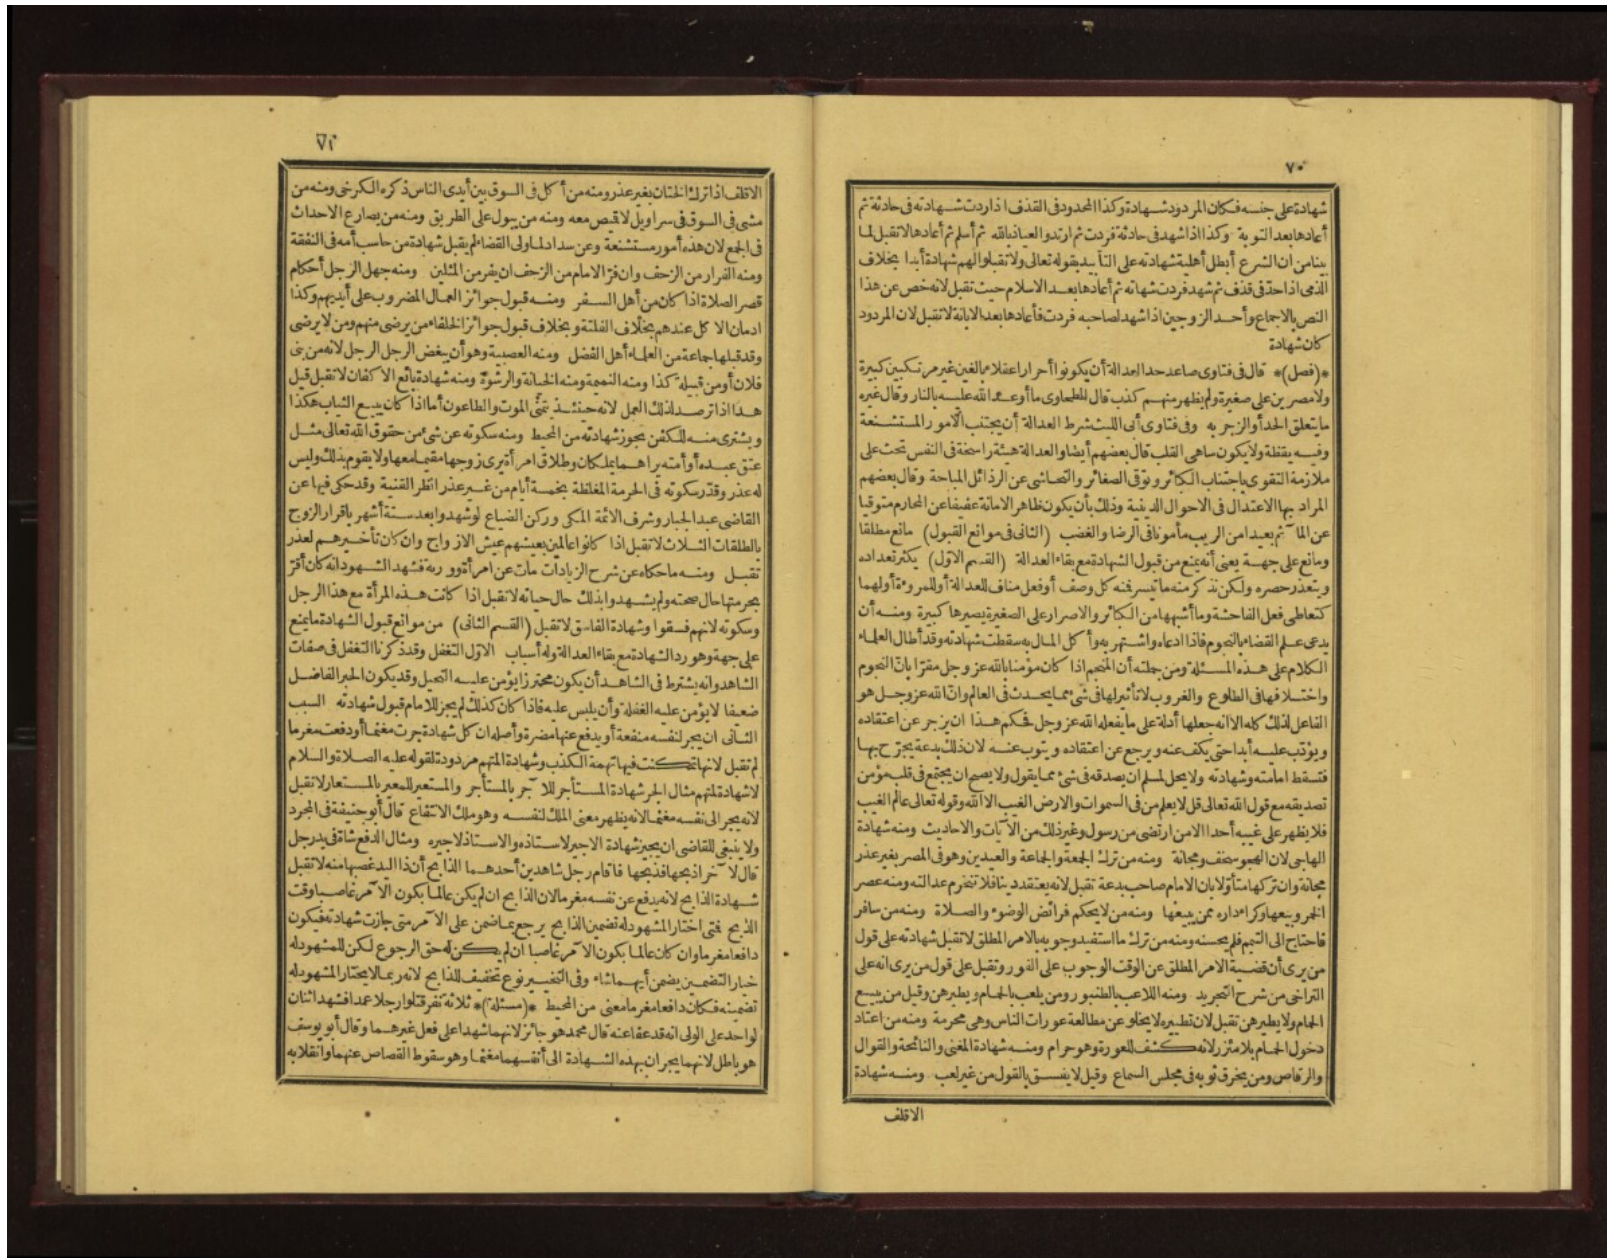 ٧٠
شهادة على جنسه فكان المردود شهادة وكذا المحدود فى القذف اذا ردت شهادته فى حادثة ثم
أعادها بعد التوبة وكذا اذا شهد فى حادثة فردت ثم ارتد والعياذ بالله ثم أسلم ثم أعادها لا تقبل لما
بينا من ان الشرع أبطل أهلية شهادته على التأبيد بقوله تعالى ولا تقبلوا لهم شهادة أبدا بخلاف
الذمى اذا حد فى قذف ثم شهد فردت شهاته ثم أعادها بعد الاسلام حيث تقبل لانه خص عن هذا
النص بالاجماع وأحد الزوجين اذا شهد لصاحبه فردت فأعادها بعد الابانة لا تقبل لان المردود
كان شهادة
*(فصل)* قال فى فتاوى صاعد حد العدالة أن يكونوا أحرارا عقلاء بالغين غير مرتكبين كبيرة
ولا مصرين على صغيرة ولم يظهر منهم كذب قال الطحاوى ما أوعد الله عليه بالنار وقال غيره
ما يتعلق الحد أو الزجر به وفى فتاوى أبى الليث شرط العدالة أن يجتنب الامور المستشنعة
وفيه يقظة ولا يكون ساهى القلب قال بعضهم أيضا والعدالة هيئة راسخة فى النفس تحث على
ملازمة التقوى باجتناب الكبائر وتوقى الصغائر والتحاشى عن الرذائل المباحة وقال بعضهم
المراد بها الاعتدال فى الاحوال الدينية وذلك بأن يكون ظاهر الامانة عفيفا عن المحارم متوقيا
عن المآثم بعيدا من الريب مأمونا فى الرضا والغضب (الثانى فى موانع القبول) مانع مطلقا
ومانع على جهة يعنى أنه يمنع من قبول الشهادة مع بقاء العدالة (القسم الاول) يكثر تعداده
ويتعذر حصره ولكن نذكر منه ما تيسر فمنه كل وصف أو فعل مناف للعدالة أو للمروءة أولهما
كتعاطى فعل الفاحشة وما أشبهها من الكبائر والاصرار على الصغيرة يصيرها كبيرة ومنه أن
يدعى علم القضاء بالنجوم فاذا ادعاه واشتهر به وأكل المال به سقطت شهادته وقد أطال العلماء
الكلام على هذه المسئلة ومن جملته أن المنجم اذا كان مؤمنا بالله عز وجل مقرا بان النجوم
واختلافها فى الطلوع والغروب لا تأثير لها فى شئ مما يحدث فى العالم وان الله عز وجل هو
الفاعل لذلك كله الا انه جعلها أدلة على ما يفعله الله عز وجل فحكم هذا ان يزجر عن اعتقاده
ويؤدب عليه أبدا حتى يكف عنه ويرجع عن اعتقاده ويتوب عنه لان ذلك بدعة يجرح بها
فتسقط امامته وشهادته ولا يحل لمسلم ان يصدقه فى شئ مما يقول ولا يصح ان يجتمع فى قلب مؤمن
تصديقه مع قول الله تعالى قل لا يعلم من فى السموات والارض الغيب الا الله وقوله تعالى عالم الغيب
فلا يظهر على غيبه أحدا الا من ارتضى من رسول وغير ذلك من الآيات والاحاديث ومنه شهادة
الهاجى لان الهجو سخف ومجانة ومنه من ترك الجمعة والجماعة والعيدين وهو فى المصر بغير عذر
مجانة وان تركها متأولا بان الامام صاحب بدعة تقبل لانه يعتقد دينا فلا تنخرم عدالته ومنه عصر
الخمر وبيعها وكراء داره ممن يبيعها ومنه من لا يحكم فرائض الوضوء والصلاة ومنه من سافر
فاحتاج الى التيمم فلم يحسنه ومنه من ترك ما استفيد وجوبه بالامر المطلق لا تقبل شهادته على قول
من يرى أن قضية الامر المطلق عن الوقت الوجوب على الفور وتقبل على قول من يرى انه على
التراخى من شرح التجريد ومنه اللاعب بالطنبور ومن يلعب بالحمام ويطيرهن وقيل من يبيع
الحمام ولا يطيرهن تقبل لان تطييره لا يخلو عن مطالعة عورات الناس وهى محرمة ومنه من اعتاد
دخول الحمام بلا مئزر لانه كشف للعورة وهو حرام ومنه شهادة المغنى والنائحة والقوال
والرقاص ومن يخرق ثوبه فى مجلس السماع وقيل لا يفسق بالقول من غير لعب ومنه شهادة
الاقلف
٧١
الاقلف اذا ترك الختان بغير عذر ومنه من أكل فى السوق بين أيدى الناس ذكره الكرخى ومنه من
مشى فى السوق فى سراويل لا قميص معه ومنه من يبول على الطريق ومنه من يصارع الاحداث
فى الجمع لان هذه أمور مستشنعة وعن سداد لما ولى القضاء لم يقبل شهادة من حاسب أمه فى النفقة
ومنه الفرار من الزحف وان فر الامام من الزحف ان يفر من المثلين ومنه جهل الرجل أحكام
قصر الصلاة اذا كان من أهل السفر ومنه قبول جوائز العمال المضروب على أيديهم وكذا
ادمان الاكل عندهم بخلاف الفلتة وبخلاف قبول جوائز الخلفاء من يرضى منهم ومن لا يرضى
وقد قبلها جماعة من العلماء أهل الفضل ومنه العصبية وهو أن يبغض الرجل الرجل لانه من بنى
فلان أو من قبيلة كذا ومنه النميمة ومنه الخيانة والرشوة ومنه شهادة بائع الاكفان لا تقبل قيل
هذا اذا ترصد لذلك العمل لانه حينئذ يتمنى الموت والطاعون أما اذا كان يبيع الثياب هكذا
ويشترى منه للكفن يجوز شهادته من المحيط ومنه سكوته عن شئ من حقوق الله تعالى مثل
عتق عبده أو أمته يراهما يملكان وطلاق امرأة يرى زوجها مقيما معها ولا يقوم بذلك وليس
له عذر وقدر سكوته فى الحرمة المغلظة بخمسة أيام من غير عذر انظر القنية وقد حكى فيها عن
القاضى عبد الجبار وشرف الائمة المكى وركن الضباع لو شهدوا بعد ستة أشهر باقرار الزوج
بالطلقات الثلاث لا تقبل اذا كانوا عالمين بعيشهم عيش الازواج وان كان تأخيرهم لعذر
تقبل ومنه ما حكاه عن شرح الزيادات مات عن امرأة وورثة فشهد الشهود انه كان أقر
بحرمتها حال صحته ولم يشهدوا بذلك حال حياته لا تقبل اذا كانت هذه المرأة مع هذا الرجل
وسكتوا لانهم فسقوا وشهادة الفاسق لا تقبل (القسم الثانى) من موانع قبول الشهادة ما يمنع
على جهة وهو رد الشهادة مع بقاء العدالة وله أسباب الاول التغفل وقد ذكرنا التغفل فى صفات
الشاهد وانه يشترط فى الشاهد أن يكون محترزا يؤمن عليه التحيل وقد يكون الخير الفاضل
ضعيفا لا يؤمن عليه الغفلة وأن يلبس عليه فاذا كان كذلك لم يجز للامام قبول شهادته السبب
الثانى ان يجر لنفسه منفعة أو يدفع عنها مضرة وأصله ان كل شهادة جرت مغنما أو دفعت مغرما
لم تقبل لانها تمكنت فيها تهمة الكذب وشهادة المتهم مردودة لقوله عليه الصلاة والسلام
لا شهادة لمتهم مثال الجر شهادة المستأجر للآجر بالمستأجر والمستعير للمعير بالمستعار لا تقبل
لانه يجر الى نفسه مغنما لانه يظهر معنى الملك لنفسه وهو ملك الانتفاع قال أبو حنيفة فى المجرد
ولا ينبغى للقاضى ان يجيز شهادة الاجير لاستاذه والاستاذ لاجيره ومثال الدفع شاة فى يد رجل
قال لآخر اذبحها فذبحها فاقام رجل شاهدين أحدهما الذابح أن ذا اليد غصبها منه لا تقبل
شهادة الذابح لانه يدفع عن نفسه مغرما لان الذابح ان لم يكن عالما بكون الآمر غاصبا وقت
الذبح فمتى اختار المشهود له تضمين الذابح يرجع بما ضمن على الآمر متى جازت شهادته فيكون
دافعا مغرما وان كان عالما بكون الآمر غاصبا ان لم يكن له حق الرجوع لكن للمشهود له
خيار التضمين يضمن أيهما شاء وفى التخيير نوع تخفيف للذابح لانه ربما لا يختار المشهود له
تضمينه فكان دافعا مغرما معنى من المحيط *(مسئلة)* ثلاثة نفر قتلوا رجلا عمدا فشهد اثنان
لواحد على الولى انه قد عفا عنه قال محمد هو جائز لانهما شهدا على فعل غيرهما وقال أبو يوسف
هو باطل لانهما يجران بهذه الشهادة الى أنفسهما مغنما وهو سقوط القصاص عنهما وانقلابه